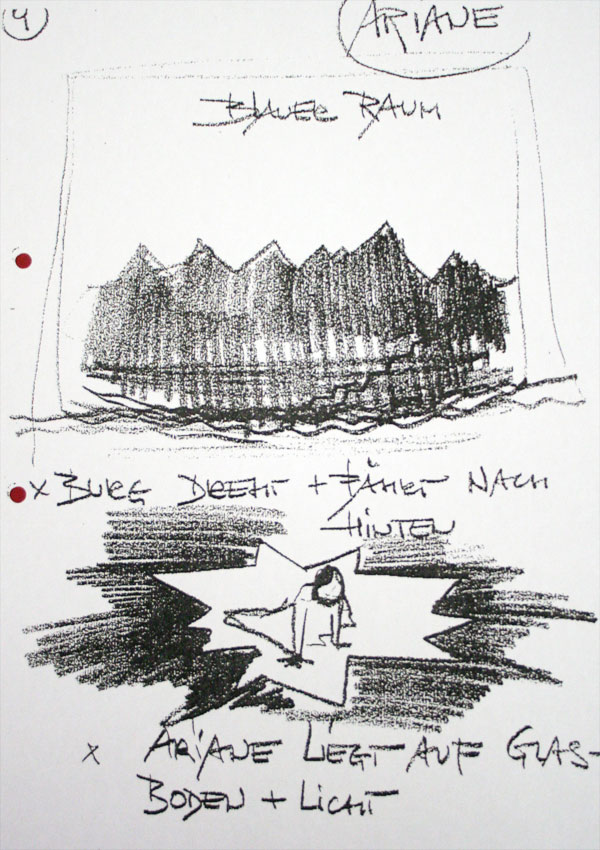 4
ARIANE
BLAUER RAUM
x BURG DREHT + FÄHRT NACH
HINTEN
x ARIANE LIEGT AUF GLAS-
BODEN + LICHT